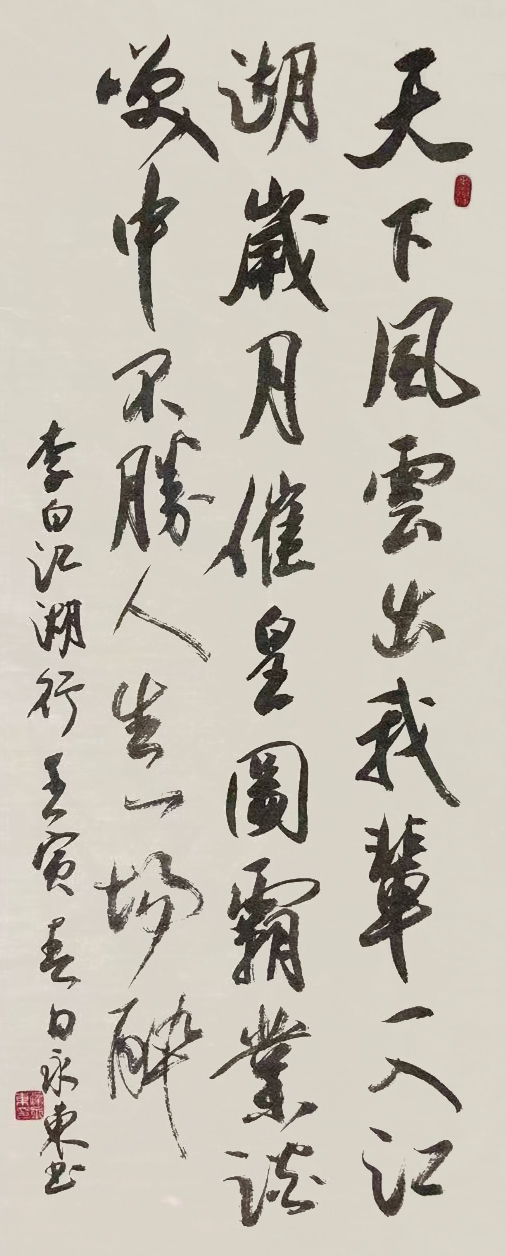 天下風雲出我輩一入江
湖歲月催皇圖霸業談
笑中不勝人生一場醉
李白江湖行壬寅春日永東書